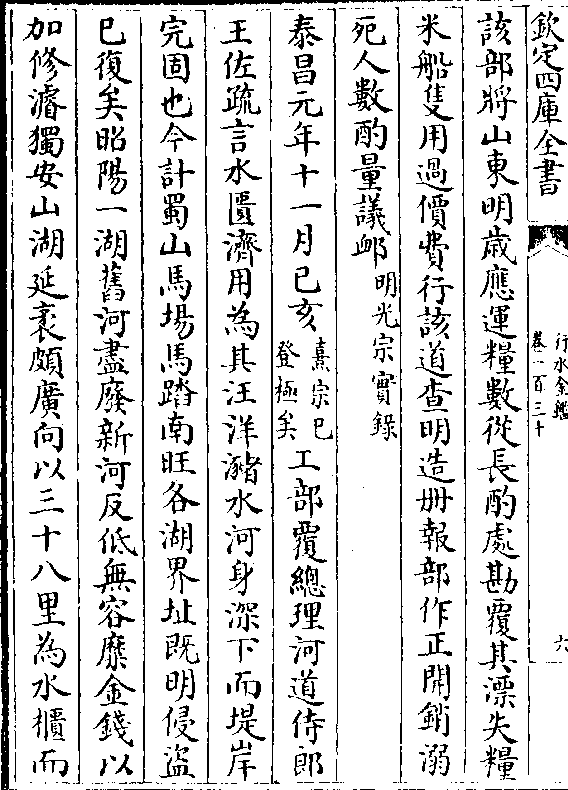 欽定四庫全書
行水金鑑
卷一百三十
六
該部將山東明歲應運糧數從長酌處勘覆其漂失糧
米船隻用過價費行該道查明造册報部作正開銷溺
死人數酌量議䘏明光宗實錄
泰昌元年十一月己亥熹宗已登極矣工部覆總理河道侍郎
王佐疏言水匱濟用為其汪洋瀦水河身深下而堤岸
完固也今計蜀山馬場馬踏南旺各湖界址既明侵盜
已復矣昭陽一湖舊河盡廢新河反低無容糜金錢以
加修濬獨安山湖延袤頗廣向以三十八里為水櫃而